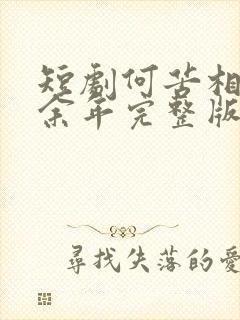 短劇何苦相
余年完整版
尋找失落的愛